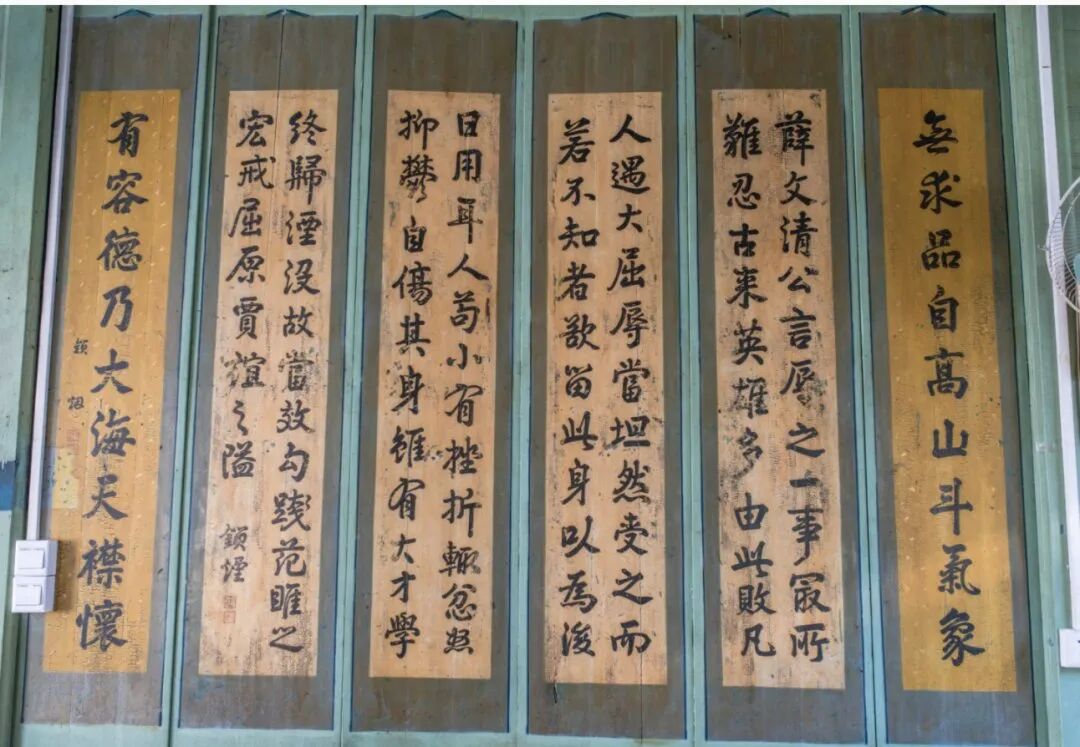 無求品自高山斗氣象
薛文清公言辱之一事寂所
難忍古来英雄多由此敗凡
人遇大屈辱當坦然受之而
若不知者欲留此身以為後
日用耳人苟小有挫折輙忿怒
抑鬱自傷其身雖有大才學
終歸湮沒故當效勾踐范睢之
宏戒屈原賈誼之隘
鎖煙
有容德乃大海天襟懷
鎖烟